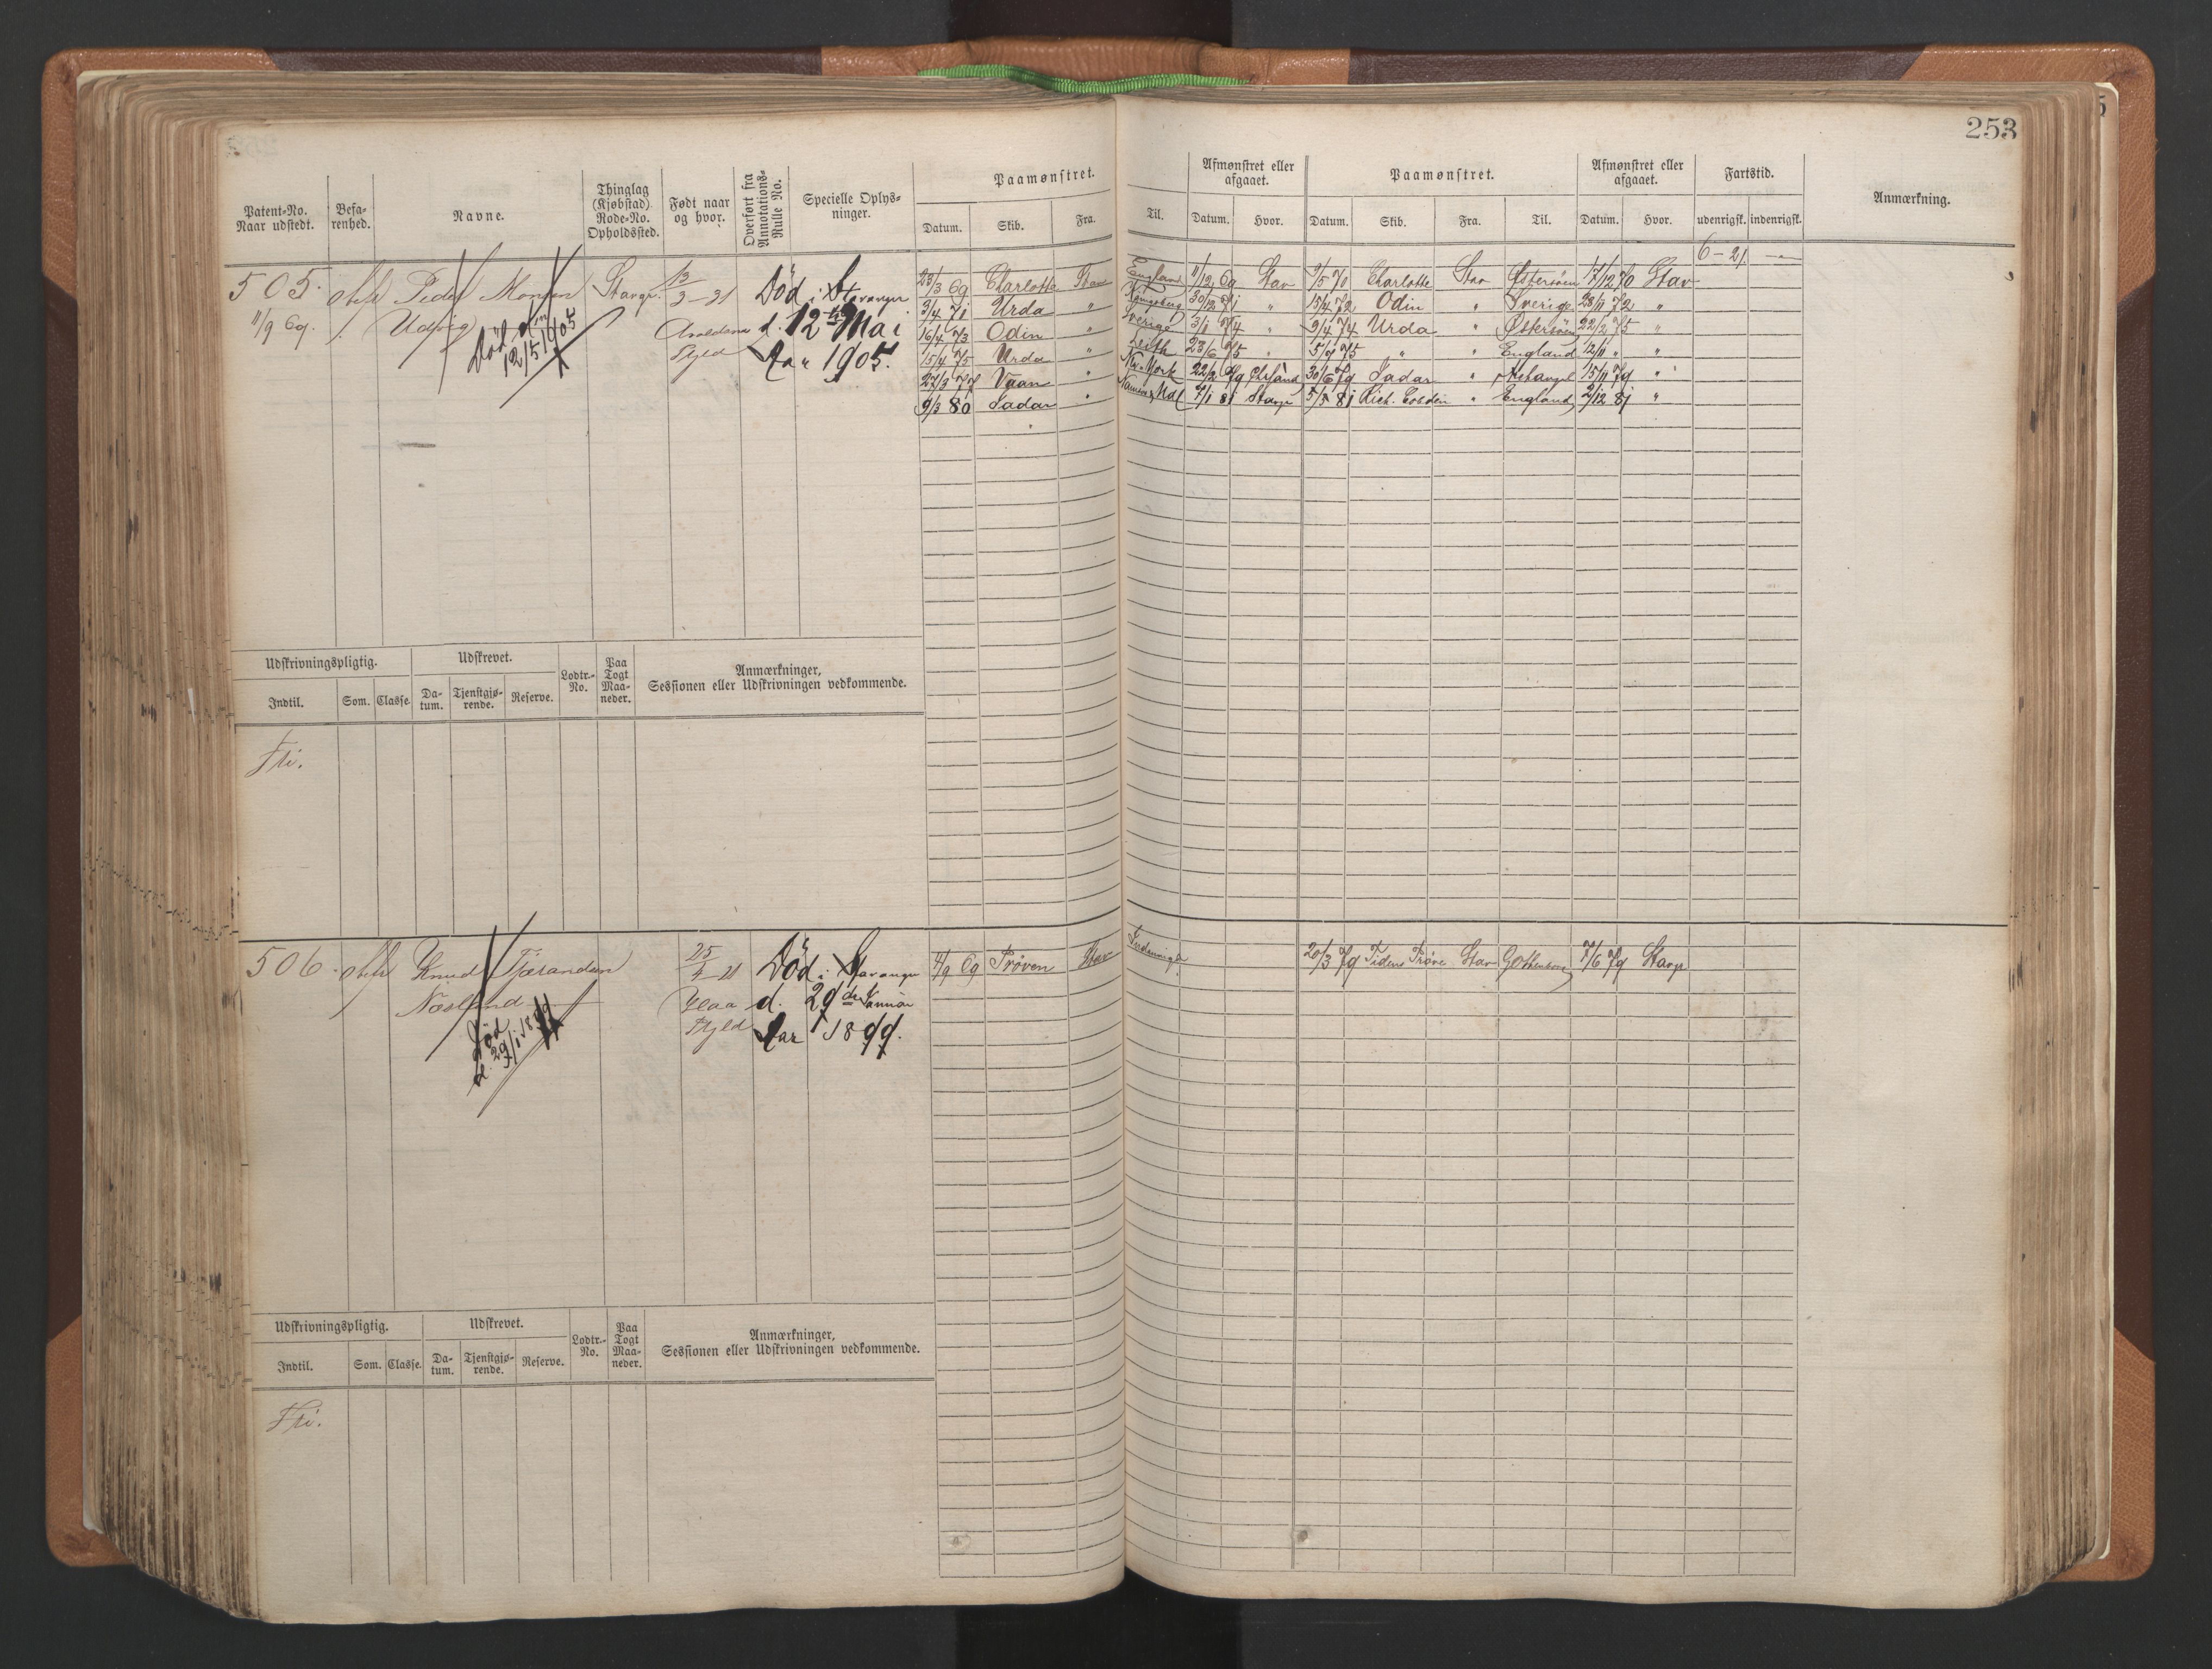 253
Patent-No.
Naar udstedt.
Befa-
renhed.
Navne.
Thinglag
(Kjøbstad)
Rode-No.
Opholdssted.
Født naar
og hvor.
Overført fra
Annotations-
Rulle No.
Specielle Oplys-
ninger.
Paamønstret.
Datum. Skib. Fra.
Til.
Afmønstret eller
afgaaet.
Datum. Hvor.
Paamønstret.
Datum. Skib. Fra. Til.
Afmønstret eller
afgaaet.
Datum. Hvor.
Fartstid.
udenrigsk. indenrigsk.
Anmærkning.
6 - 21
505.
11/9 69.
Peder Monsen
Død
12/5 1905
Stavgr.
13/3 - 31
Fyld
Død i Stavanger
d. 12te Mai
Aar 1905.
23/3 69 Charlotte Stav England 11/12 69 Stav 9/5 70 Charlotte Stav Østersøen 17/12 70 Stav
3/4 71 Urda " 30/12 71 " 15/4 72 Odin " Sverige 28/11 72 "
16/4 73 Odin " Sverige 3/1 74 " 9/4 74 Urda " Østersøen 22/2 75 "
15/4 75 Urda " Leith 23/6 75 " 5/7 75 " " England 12/11 " "
27/3 77 " New-York 22/2 79 30/6 79 Jadar " Archangel 15/11 79 "
9/3 80 Jadar " 7/1 81 Stavgr 5/5 81 Rich. Cobden " England 2/12 81 "
Udskrivningspligtig.
Indtil. Som. Classe.
Udskrevet.
Da-
tum.
Tjenstgjø-
rende.
Reserve.
Lodtr.-
No.
Paa
Togt
Maa-
neder.
Anmærkninger,
Sessionen eller Udskrivningen vedkommende.
Fri.
506.
Knud Tjerandsen
Død
d. 29/1 1899
Fyld
Død i Stavanger
d. 29de Januar
Aar 1899.
4/9 69 Prøven Stav Indenrigs 20/3 79 Tidens Prøve Stav Gottenborg 7/6 79 Stavgr
Udskrivningspligtig.
Indtil. Som. Classe.
Udskrevet.
Da-
tum.
Tjenstgjø-
rende.
Reserve.
Lodtr.-
No.
Paa
Togt
Maa-
neder.
Anmærkninger,
Sessionen eller Udskrivningen vedkommende.
Fri.